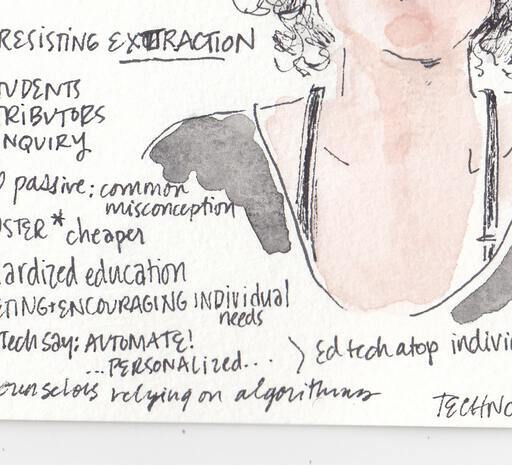 RESISTING EXTRACTION
TUDENTS
TRIBUTORS
NQUIRY
passive: common
misconception
STER * cheaper
ardized education
ETING+ENCOURAGING INDIVIDUAL
needs
Tech say: AUTOMATE!
...PERSONALIZED...
Ed tech atop individ
ounselors relying on algorithms
TECHNO